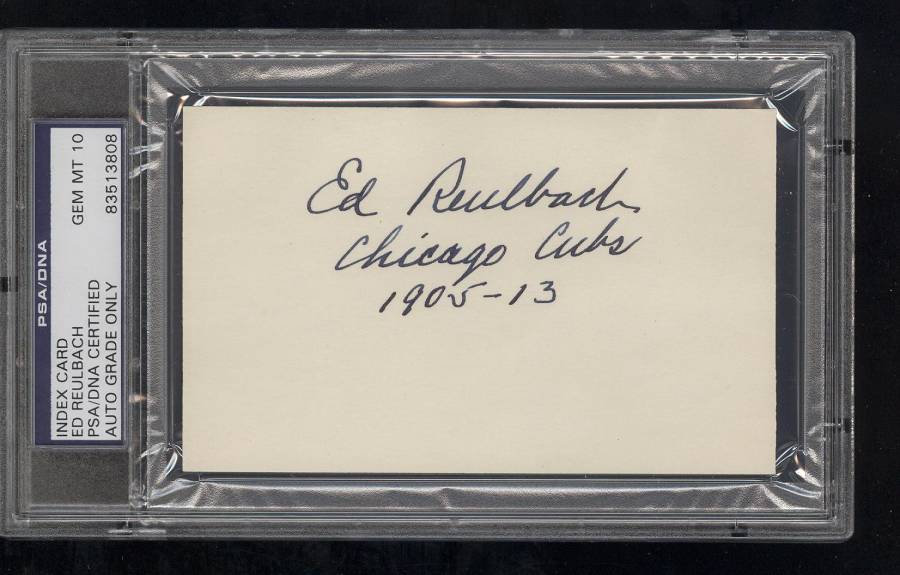 PSA/DNA
INDEX CARD GEM MT 10
ED REULBACH
PSA/DNA CERTIFIED
AUTO GRADE ONLY 83513808
Ed Reulbach
Chicago Cubs
1905-13